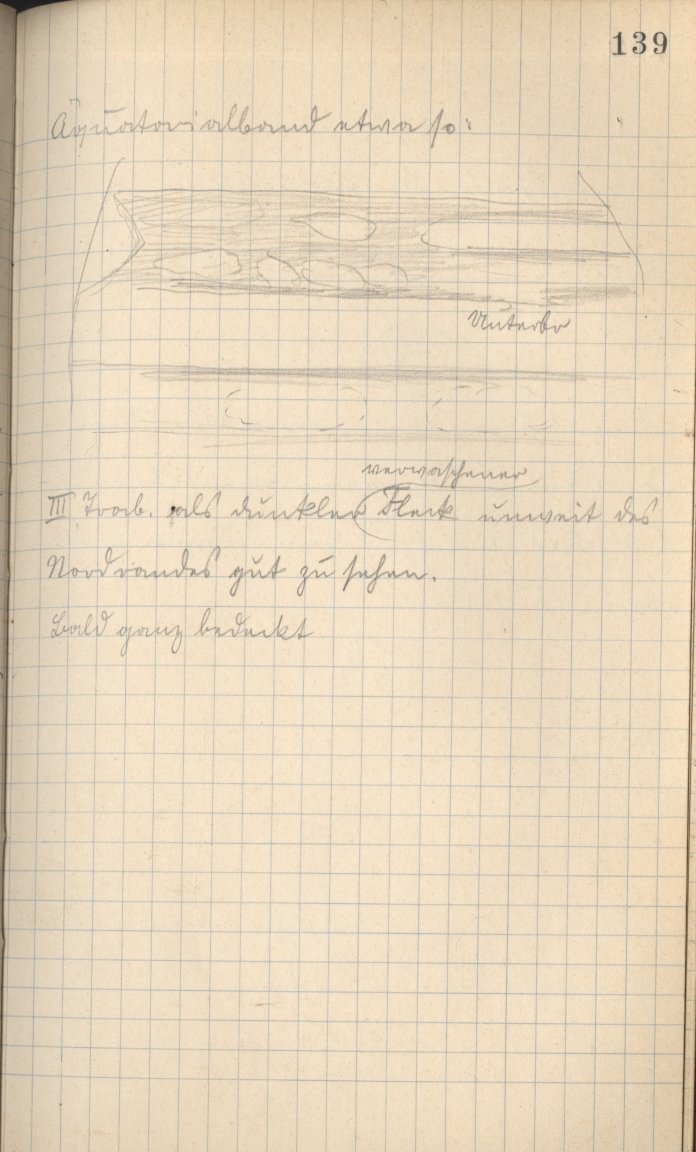 139
Äquatorialband etwa so:
Unterbr
verwaschener
III Trab. als dunkler Fleck unweit des
Nordrandes gut zu sehen.
Bald ganz bedeckt